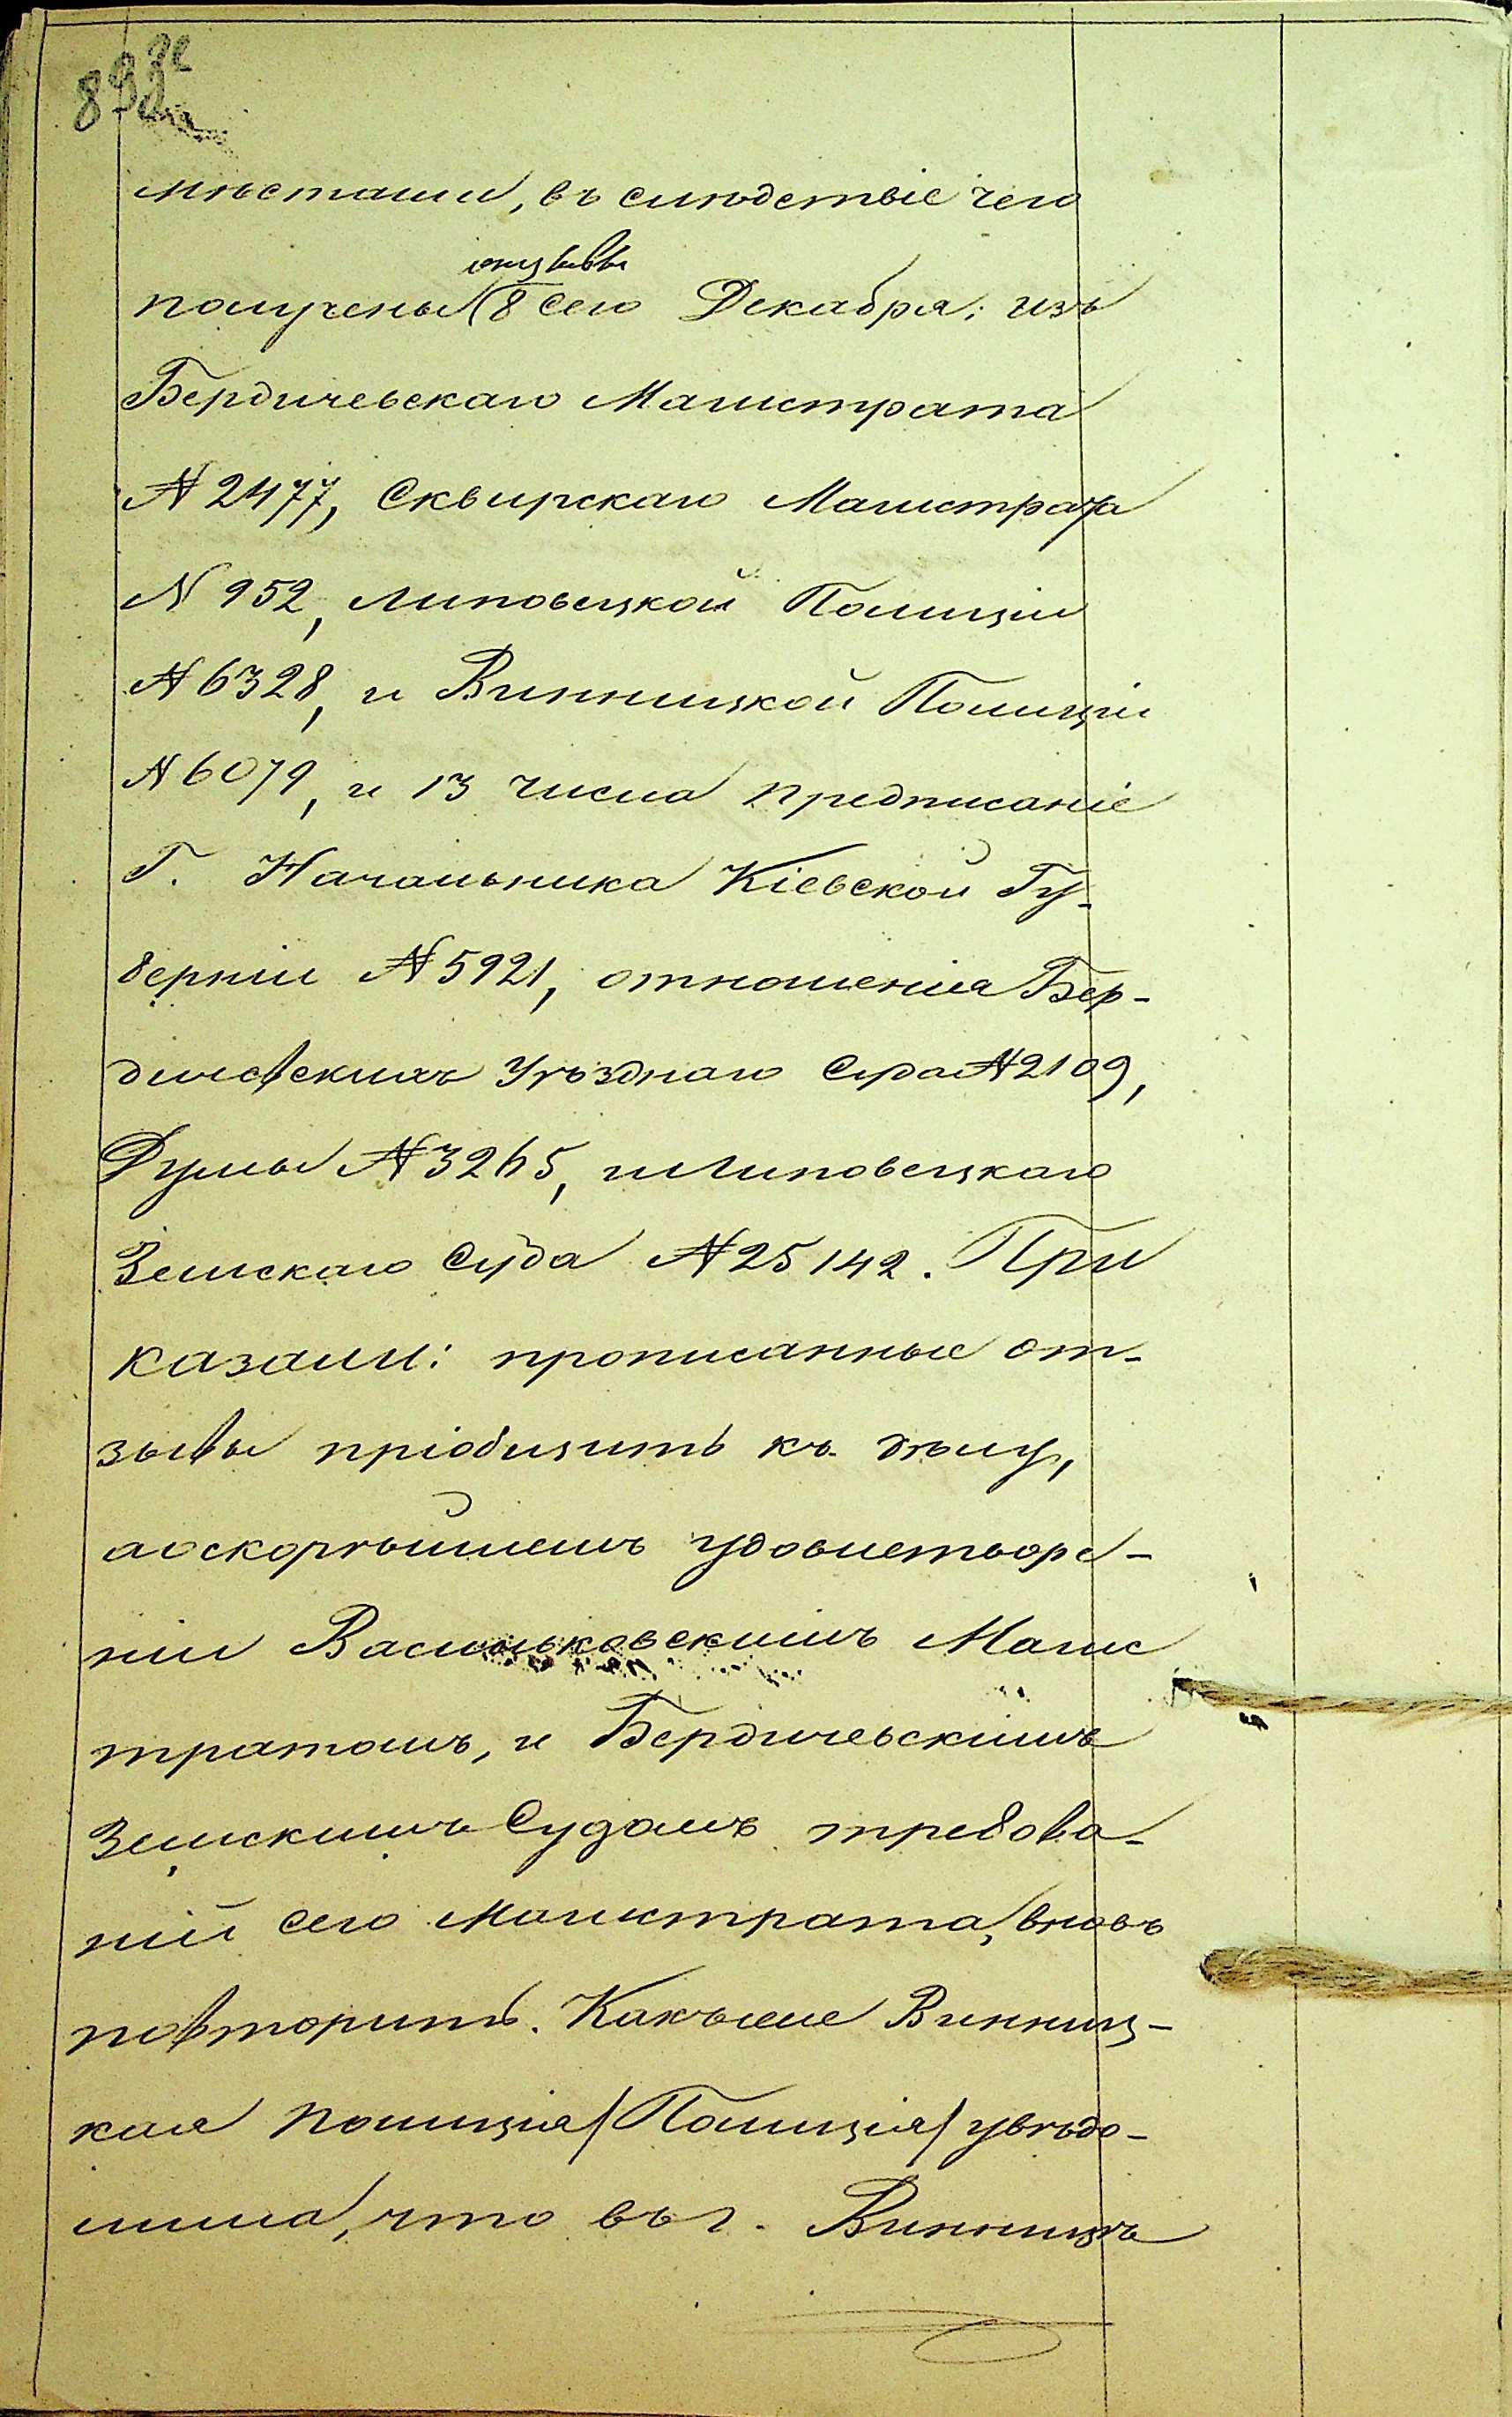 мѣстами, въ слѣдствіе чего
отзывы
получены 8 сего Декабря: изъ
Бердичевскаго Магистрата
№ 2477, Сквирскаго Магистрата
№ 952, Липовецкой Полиціи
№ 6328, и Винницкой Полиціи
№ 6079, и 13 числа предписаніе
Г. Начальника Кіевской Гу-
берніи № 5921, отношенія Бер-
дичевскихъ Уѣзднаго Суда № 2109,
Думы № 3265, и Липовецкаго
Земскаго Суда № 25142. При
казали: прописанные от-
зывы пріобщить къ дѣлу,
а о скорѣйшемъ удовлетворе-
ніи Васильковскимъ Магис
тратомъ, и Бердичевскимъ
Земскимъ Судомъ требова-
ній сего Магистрата, вновь
повторить. Какъ же Винниц-
кая полиція / Полиція / увѣдо-
мила, что въ г. Винницѣ